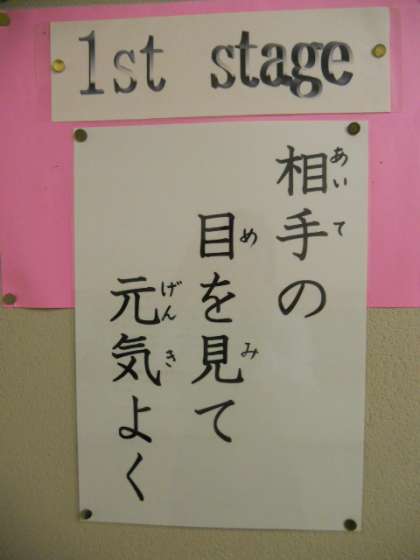 1st stage
相手の
目を見て
元気よく
あいて
め
み
げんき